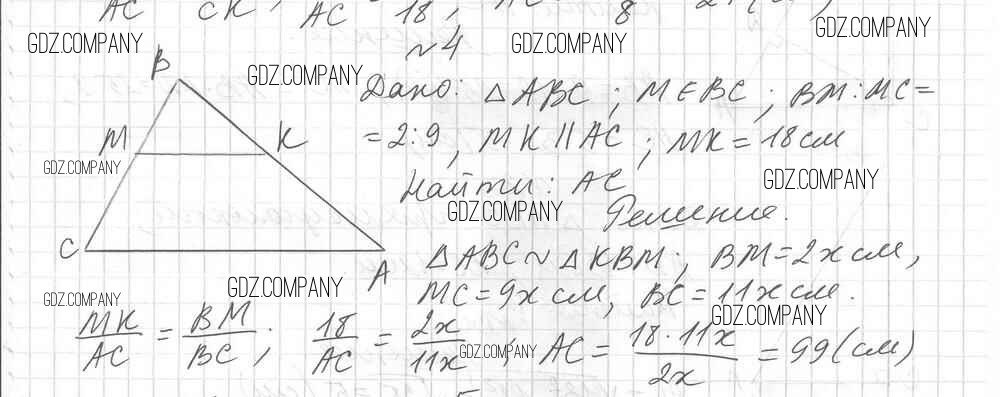 AC CK ; AC 18 ; 8
GDZ.COMPANY GDZ.COMPANY GDZ.COMPANY
№4
B GDZ.COMPANY
Дано: △ABC ; M∈BC ; BM:MC=
M K = 2:9, MK ∥ AC ; MK = 18 см
GDZ.COMPANY
Найти: AC GDZ.COMPANY
GDZ.COMPANY Решение.
C A △ABC ~ △KBM ; BM = 2x см,
GDZ.COMPANY GDZ.COMPANY MC = 9x см, BC = 11x см.
GDZ.COMPANY
MK/AC = BM/BC ; 18/AC = 2x/11x ; AC = 18·11x/2x = 99 (см)
GDZ.COMPANY